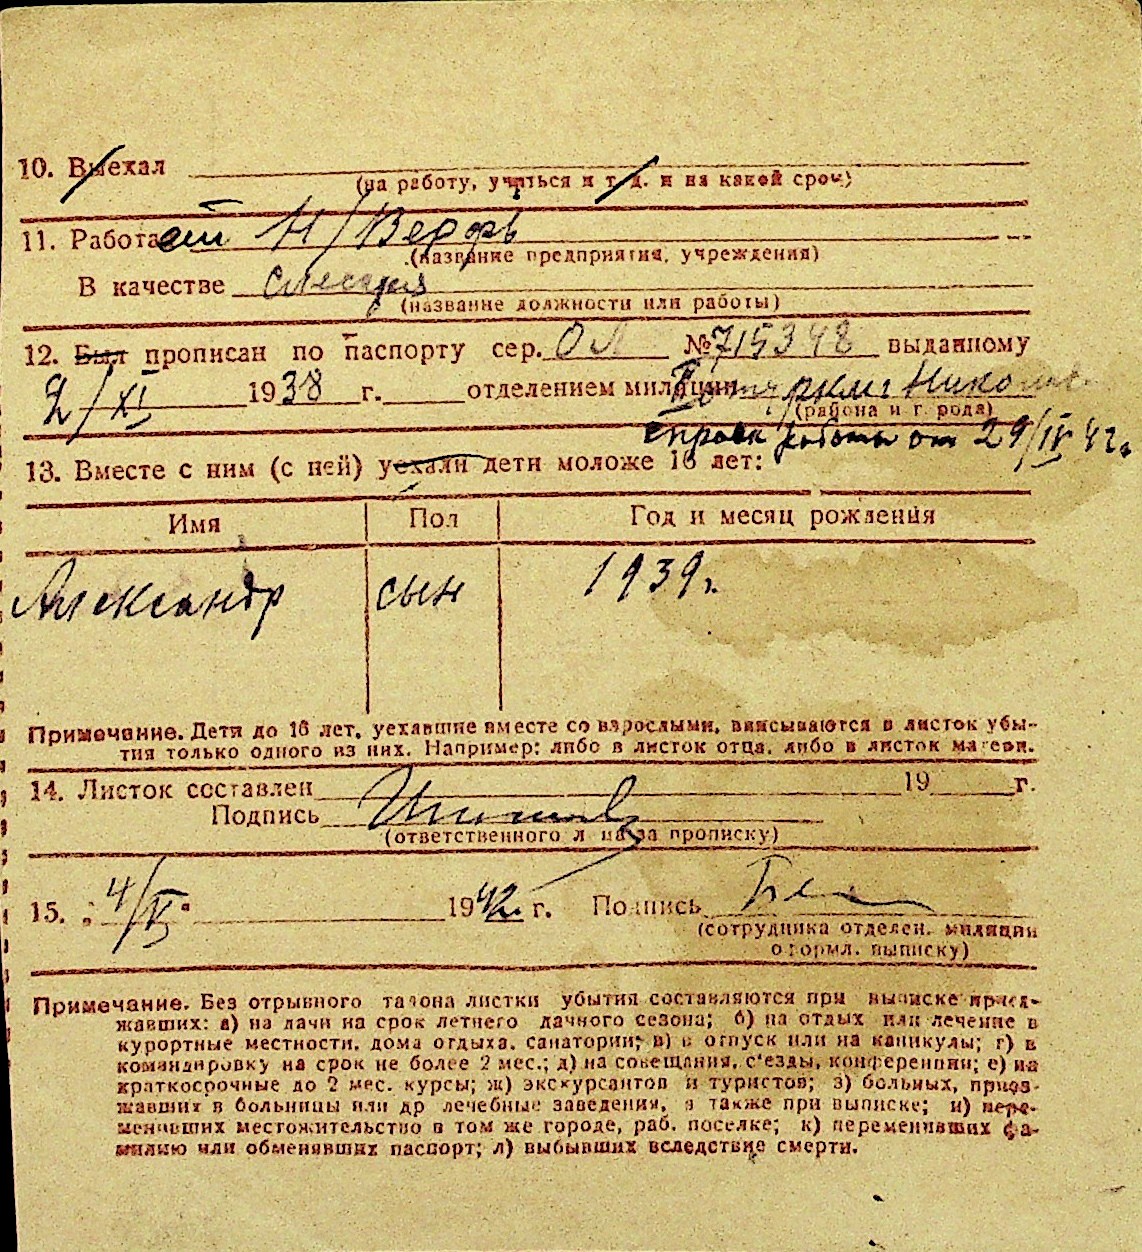 10. Выехал
(на работу, учиться и т. д. и на какой срок)
11. Работает Н/Верфь
(название предприятия, учреждения)
В качестве слесаря
(название должности или работы)
12. Был прописан по паспорту сер. ОЛ № 715348 выданному
2/XI 1938 г. отделением милиции
(района и города)
справка работы от 29/IV 42 г.
13. Вместе с ним (с ней) уехали дети моложе 16 лет:
Имя Пол Год и месяц рождения
Александр сын 1939 г.
Примечание. Дети до 16 лет, уехавшие вместе со взрослыми, вписываются в листок убы-
тия только одного из них. Например: либо в листок отца, либо в листок матери.
14. Листок составлен 19 г.
Подпись
(ответственного лица за прописку)
15. „4/V“ 1942 г. Подпись
(сотрудника отделен. милиции
оформл. выписку)
Примечание. Без отрывного талона листки убытия составляются при выписке приез-
жавших: а) на дачи на срок летнего дачного сезона; б) на отдых или лечение в
курортные местности, дома отдыха, санатории; в) в отпуск или на каникулы; г) в
командировку на срок не более 2 мес.; д) на совещания, с'езды, конференции; е) на
краткосрочные до 2 мес. курсы; ж) экскурсантов и туристов; з) больных, приез-
жавших в больницы или др лечебные заведения, а также при выписке; и) пере-
менивших местожительство в том же городе, раб. поселке; к) переменивших фа-
милию или обменявших паспорт; л) выбывших вследствие смерти.